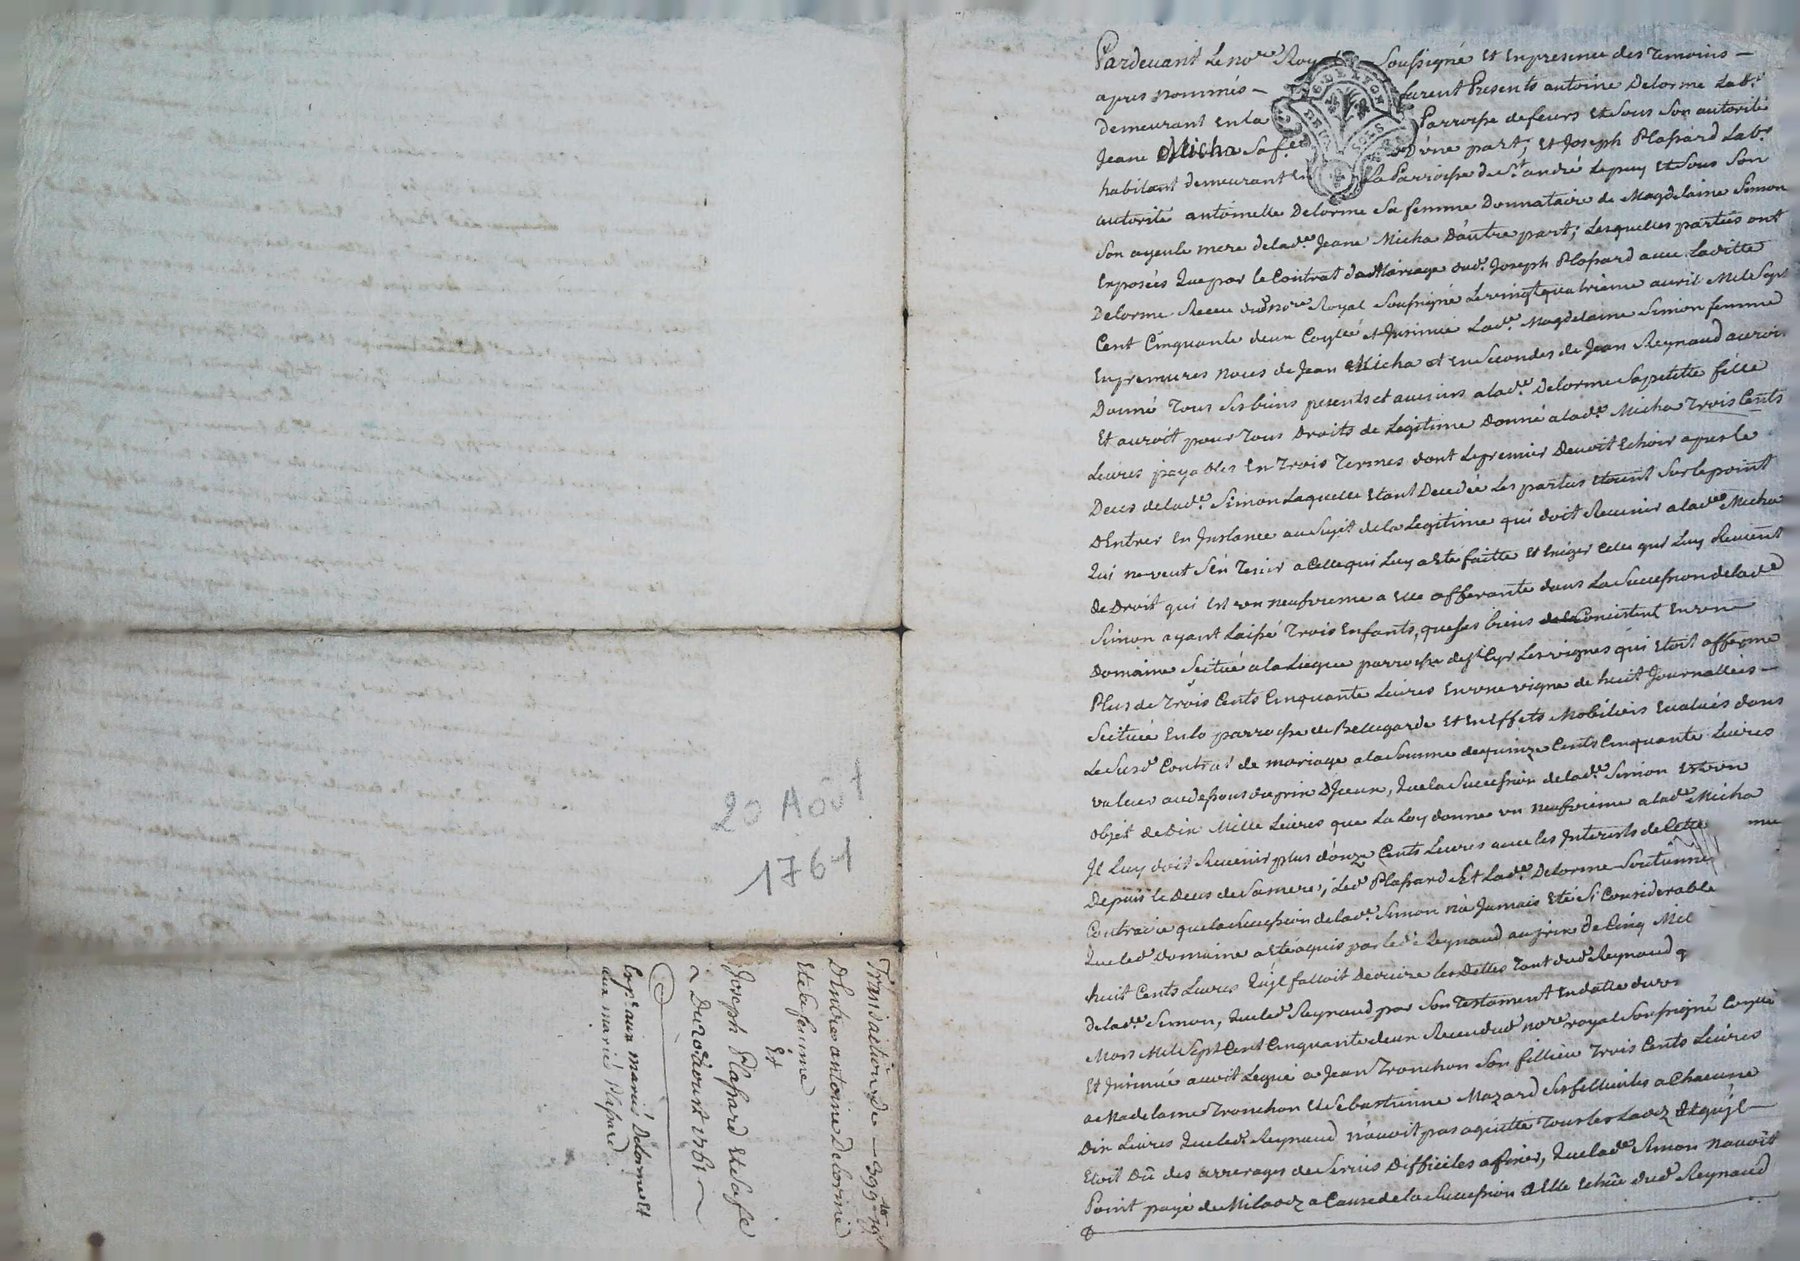 Pardevant Le no.re Roy Soussigné Et En presence des Temoins —
apres Nommés — furent Presents antoine Delorme Lab.r
demeurant En la Parroisse de feurs Et Sous Son autorité
Jeane Micha Sa f.e D'une part; Et Joseph Plassard Lab.r
habitant demeurant En La Parroisse de S.t andré Lepuy Et Sous Son
autorité antoinette Delorme Sa femme Donnataire de Magdelaine Simon
Son ayeule mere de lad.e Jeane Micha D'autre part; Lesquelles parties ont
Exposées Que par le Contrat de Mariage dud. Joseph Plassard avec Laditte
Delorme Receu dud. no.re Royal Soussigné Le vingt quatrieme avril Mil Sept
Cent Cinquante deux Coyté et Jnsinué Lad.e Magdelaine Simon femme
En premieres noces de Jean Micha et En Secondes de Jean Reynaud auroit
Donné Tous Ses biens presents et avenirs a lad.e Delorme Sa petitte fille
Et auroit pour Tous Droits de Legitime Donné a lad.e Micha Trois Cents
Livres payables En Trois Termes dont Le premier Devoit Echoir apres le
Deces de lad.e Simon Laquelle Etant Decedée Les parties Etoient Sur le point
D'Entrer En Jnstance au Sujet de la Legitime qui doit Revenir a lad.e Micha
Qui ne veut S'en Tenir a Celle qui Luy a Ete faitte Et Exiger Celle qui Luy Revient
de Droit qui Est un neufvieme a Elle afferante dans La Succession de lad.e
Simon ayant Laissé Trois Enfants, que Ses biens Consistent En un
Domaine Scitué a la Liegue parroisse de S.t Cyr Les vignes qui Etoit affermé
Plus de Trois Cents Cinquante Livres En une vigne de huit Journallées —
Scituée En la parroisse de Bellegarde Et En Effets Mobiliers Evalués dans
Le Susd. Contrat de mariage a la Somme de quinze Cents Cinquante Livres
valeur au dessous du prix D'Jceux, Que la Succession de lad.e Simon Est un
objet de Dix Mille Livres que La Loy donne un neufvieme a lad.e Micha
Jl Luy doit Revenir plus d'onze Cents Livres avec les Jnterests de Cette
Depuis le Deces de Sa mere; Led. Plassard Et Lad.e Delorme Soutienne
Contraire que la Succession de lad.e Simon n'a Jamais Eté Si Considerable
Que led. domaine a Eté aquis par led. Reynaud au prix de Cinq Mil
huit Cents Livres Qu'jl falloit Deduire les Dettes Tant dud. Reynaud q
de lad.e Simon, Que led. Reynaud par Son Testament En datte du
Mars Mil Sept Cent Cinquante deux Receu dud. no.re royal Soussigné Coyté
Et Jnsinué avoit Legué a Jean Tronchon Son fillieu Trois Cents Livres
a Madelaine Tronchon Et Sebastienne Mazard Ses filleules a Chacune
Dix Livres Que led. Reynaud n'avoit pas aquitté Tous les Laodz Et qu'jl —
Etoit Dû des arrerages de Servis Difficiles a fixer, Que lad.e Simon n'avoit
Point payé de Milaodz a Cause de la Succession a Elle Echüe dud. Reynaud
20 Août
1761
Transaction De — 399
D'Entre antoine Delorme
Et Sa femme
Et
Joseph Plassard Et Sa fe
Du 20 aoust 1761
Exp.e aux mariés Delorme Et
aux mariés Plassard